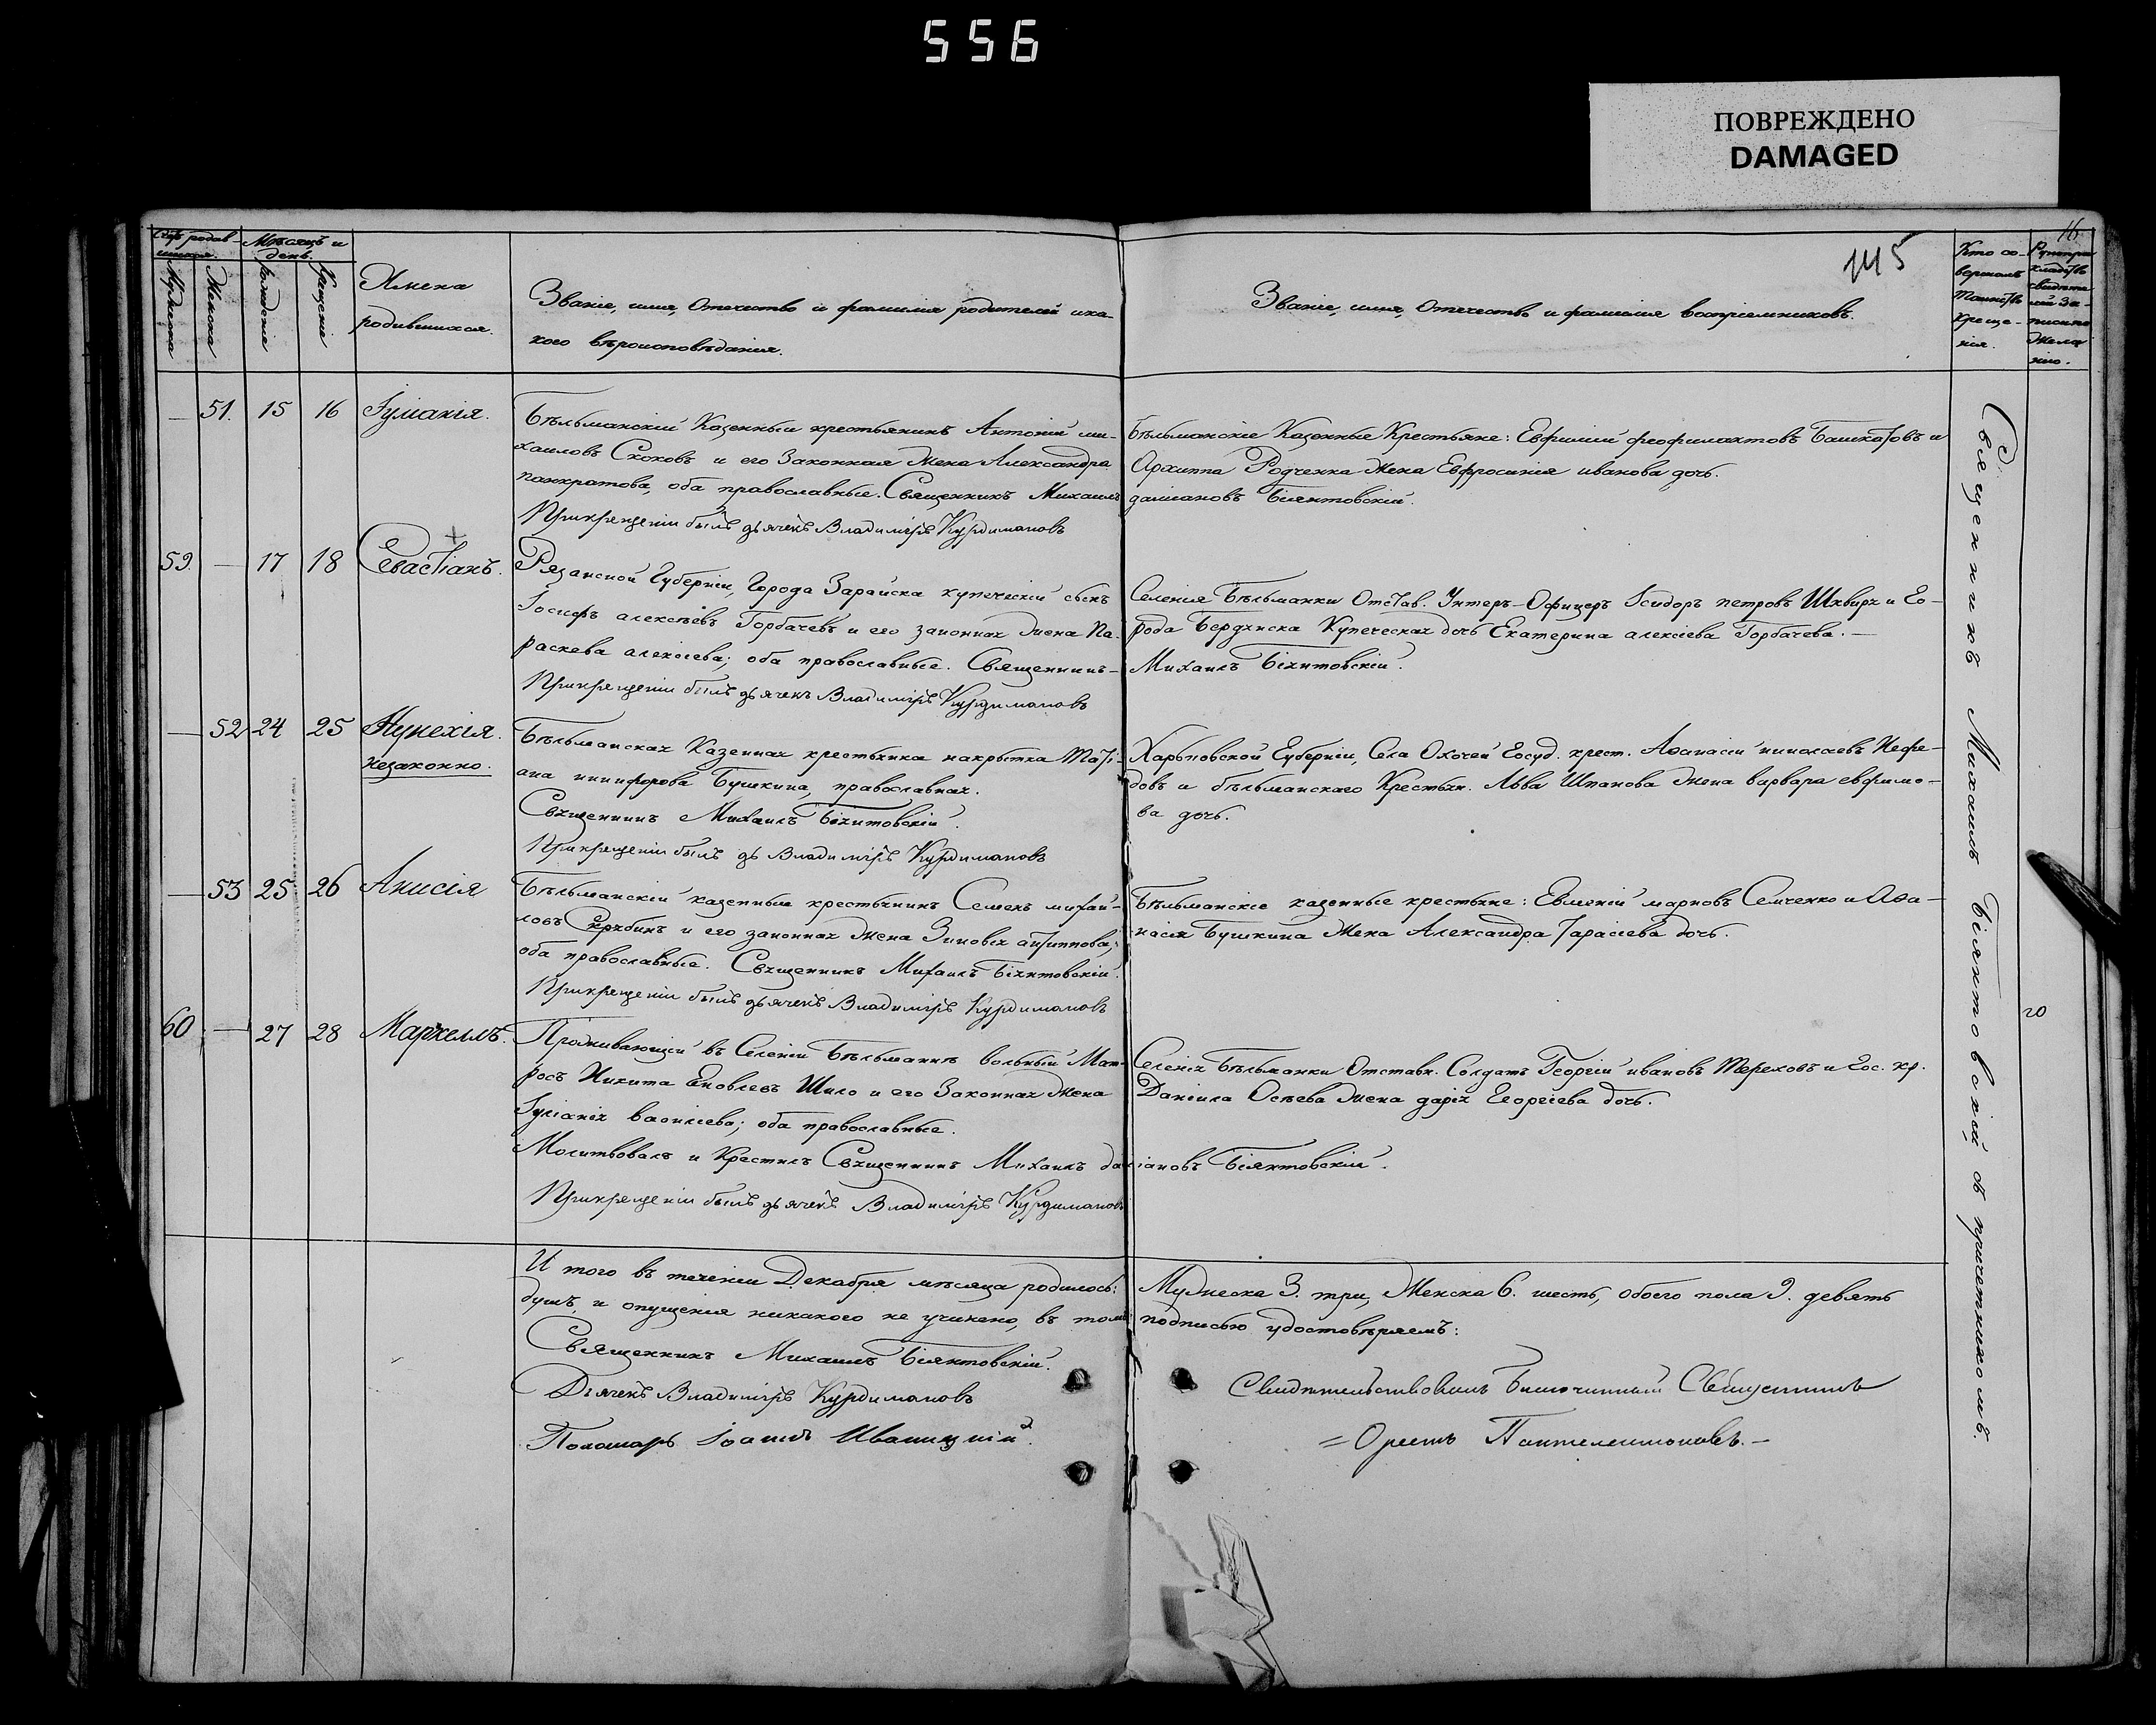 556
ПОВРЕЖДЕНО
DAMAGED
16
145
Счетъ родив-
шихся.
Мѣсяцъ и
день.
Мужеска
Женска
рожденіе
крещеніе
Имена
родившихся.
Званіе, имя, Отечество и фамилія родителей и ка-
кого вѣроисповѣданія.
Званіе, имя, Отечество и фамилія воспріемниковъ.
Кто со-
вершалъ
таинство
креще-
нія.
— 51. 15 16 Іуліанія.
Бѣльманскій Казенный крестьянинъ Антоній ми-
хаиловъ Скоковъ и его Законная Жена Александра
панкратова, оба православные. Священникъ Михаилъ
Прикрещеніи былъ дьячекъ Владиміръ Курдимановъ
Бѣльманскіе Казенные Крестьяне: Евфимій феофилактовъ Башкатовъ и
Архиппа Родченка Жена Евфросинія иванова дочь.
даміановъ Біянтовскій.
59. — 17 18 Севастіанъ.
Рязанской Губерніи, Города Зарайска купеческій сынъ
Іосифъ алексѣевъ Горбачевъ и его законная Жена Па-
раскева алексіева; оба православные. Священникъ—
Прикрещеніи былъ дьячекъ Владиміръ Курдимановъ
Селенія Бѣльманки Отстав. Унтеръ-Офицеръ Ісидоръ петровъ Шквиря и Го-
рода Бердянска Купеческая дочь Екатерина алексіева Горбачева.—
Михаилъ Біянтовскій.
— 52 24 25
незаконно.
Бѣльманская Казенная крестьянка накрытка Таті-
ана никифорова Бушкина, православная.
Священникъ Михаилъ Біянтовскій.
Прикрещеніи былъ дь Владиміръ Курдимановъ
Харьковской Губерніи, Села Охочей Госуд. крест. Аѳанасій николаевъ Нефе-
довъ и бѣльманскаго Крестьян. Льва Шпакова Жена варвара евфимо-
ва дочь.
— 53 25 26 Анисія
Бѣльманскій казенный крестьянинъ Семенъ михай-
ловъ Скрябинъ и его законная Жена Зиновія антиппова;
оба православные. Священникъ Михаилъ Біянтовскій.
Прикрещеніи былъ дьячекъ Владиміръ Курдимановъ
Бѣльманскіе казенные крестьяне: Евменій марковъ Семченко и Аѳа-
насія Бушкина Жена Александра Тарасіева дочь.
60. — 27 28 Маркеллъ.
Проживающій въ Селеніи Бѣльманкѣ вольный Мат-
росъ Никита Яковлевъ Шило и его Законная Жена
Іуліанія василіева; оба православные.
Молитвовалъ и Крестилъ Священникъ Михаилъ даміановъ Біянтовскій.
Прикрещеніи былъ дьячекъ Владиміръ Курдимановъ
Селенія Бѣльманки Отставн. Солдатъ Георгій ивановъ Тереховъ и Гос. кр.
Даніила Осѣева Жена дарія Егоргіева дочь.
Священникъ Михаилъ Біянтовскій съ причетникомъ.
И того въ теченіи Декабря мѣсяца родилось: Мужеска 3. три, Женска 6. шесть, обоего пола 9. девять
душъ, и опущенія никакого не учинено, въ томъ подписью удостовѣряемъ:
Священникъ Михаилъ Біянтовскій.
Дьячекъ Владиміръ Курдимановъ
Пономарь Іоаннъ Иваницкій.
Свидѣтельствовалъ Благочинный Священникъ
= Орестъ Пантелеимоновъ.—